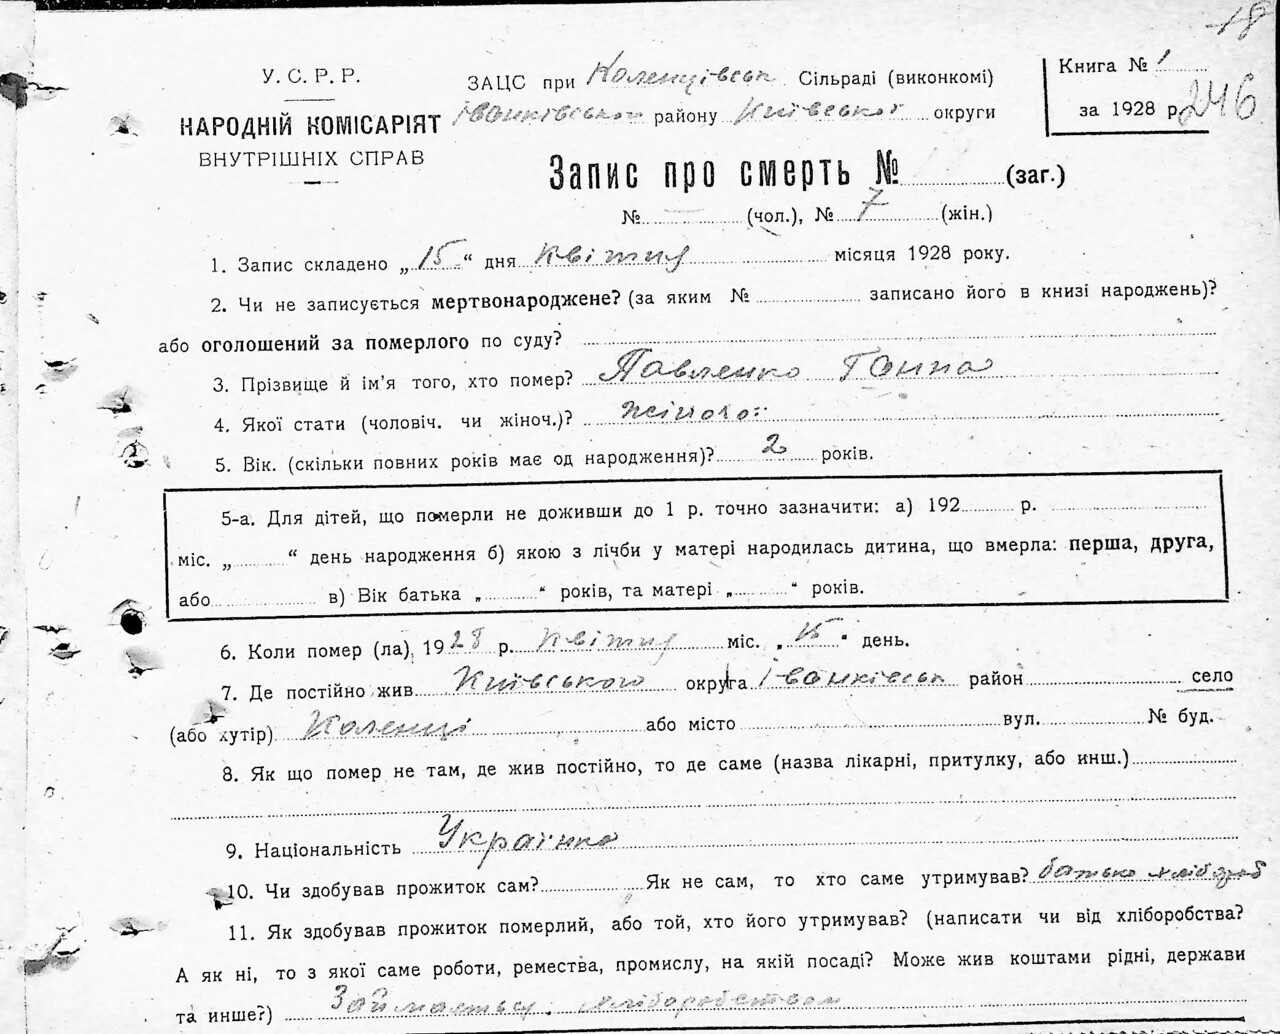 18
У. С. Р. Р.
НАРОДНІЙ КОМІСАРІЯТ
ВНУТРІШНІХ СПРАВ
ЗАЦС при Коленцівськ Сільраді (виконкомі)
Іванківського району Київської округи
Книга № 1
за 1928 р. 246
Запис про смерть № (заг.)
№ — (чол.), № 7 (жін.)
1. Запис складено „15“ дня квітня місяця 1928 року.
2. Чи не записується мертвонароджене? (за яким № записано його в книзі народжень)?
або оголошений за померлого по суду?
3. Прізвище й ім'я того, хто помер? Павленко Ганна
4. Якої стати (чоловіч. чи жіноч.)? жіночо:
5. Вік. (скільки повних років має од народження)? 2 років.
5-а. Для дітей, що померли не доживши до 1 р. точно зазначити: а) 192 р.
міс. „ “ день народження б) якою з лічби у матері народилась дитина, що вмерла: перша, друга,
або в) Вік батька „ “ років, та матері „ “ років.
6. Коли помер (ла) 1928 р. квітня міс. „15“ день.
7. Де постійно жив Київського округа Іванківськ район село
(або хутір) Коленці або місто вул. № буд.
8. Як що помер не там, де жив постійно, то де саме (назва лікарні, притулку, або инш.)
9. Національність Українка
10. Чи здобував прожиток сам? Як не сам, то хто саме утримував? батько хлібороб
11. Як здобував прожиток померлий, або той, хто його утримував? (написати чи від хліборобства?
А як ні, то з якої саме роботи, ремества, промислу, на якій посаді? Може жив коштами рідні, держави
та инше?) Займається хліборобством